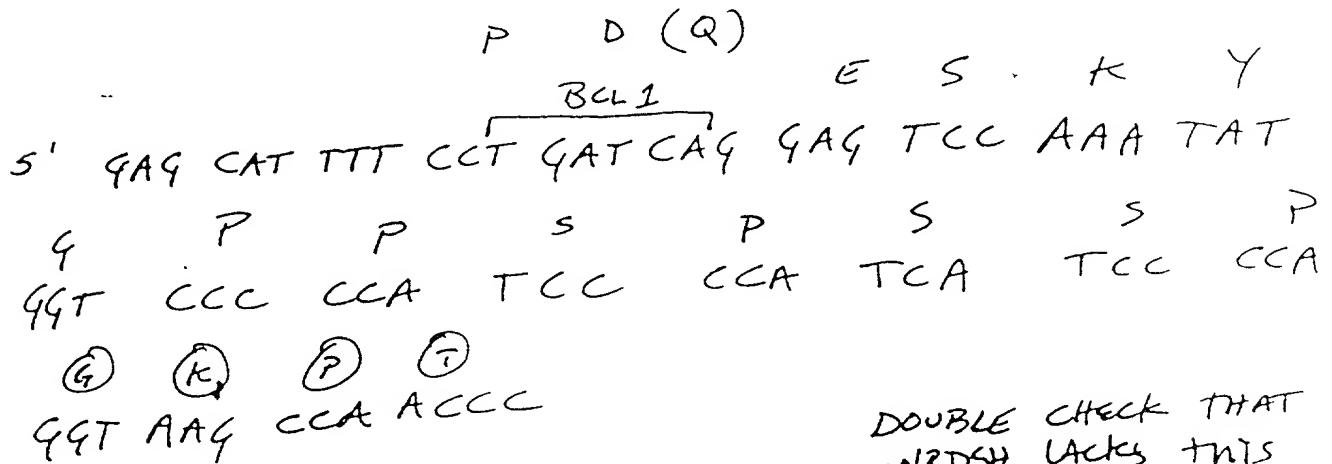 P D (Q)
E S . K Y
BCL 1
5' GAG CAT TTT CCT GATCAG GAG TCC AAA TAT
G P P S P S S P
GGT CCC CCA TCC CCA TCA TCC CCA
G K P T
GGT AAG CCA ACCC
DOUBLE CHECK THAT
LACKS THIS